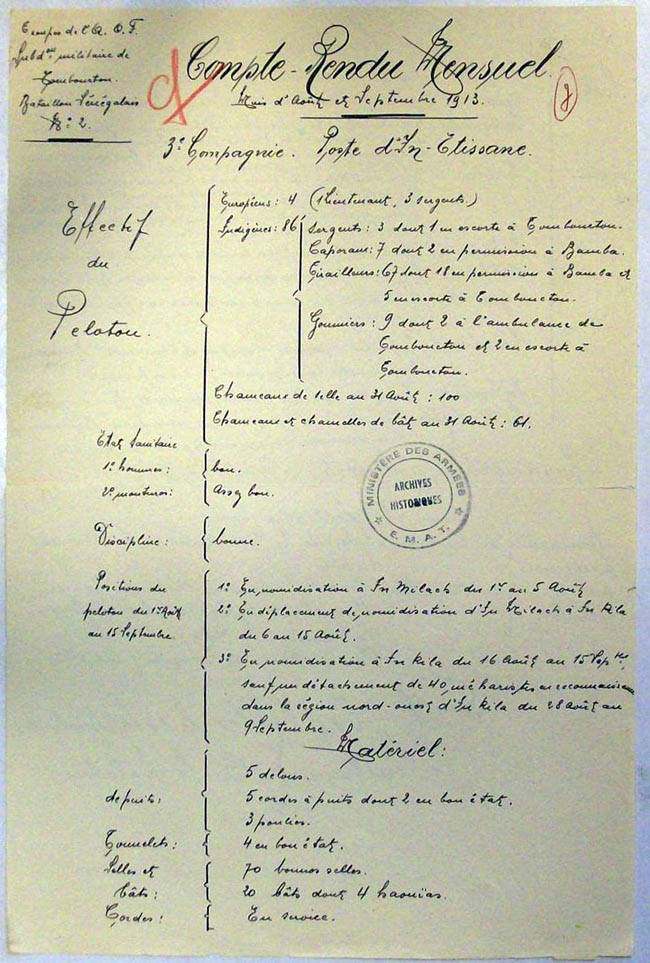 Troupes de l'A. O. F.
Subd.on militaire de
Tombouctou.
Bataillon Sénégalais
N: 2.
Compte-Rendu Mensuel.
Mois d'Août et Septembre 1913.
3e Compagnie. Poste d'In-Etissane.
Effectif
du
Peloton.
Européens: 4 (1 lieutenant, 3 sergents.)
Indigènes: 86
Sergents: 3 dont 1 en escorte à Tombouctou.
Caporaux: 7 dont 2 en permission à Bamba.
Tirailleurs: 67 dont 18 en permission à Bamba et
5 en escorte à Tombouctou.
Goumiers: 9 dont 2 à l'ambulance de
Tombouctou et 2 en escorte à
Tombouctou.
Chameaux de selle au 31 Août: 100
Chameaux et chamelles de bât au 31 Août: 61.
Etat Sanitaire
1º hommes: bon.
2º montures: Assez bon.
MINISTÈRE DES ARMÉES
ARCHIVES
HISTORIQUES
E. M. A. T.
Discipline: bonne.
Positions du
peloton du 1er Août
au 15 Septembre
1º En nomidisation à In Milach du 1er au 5 Août
2º En déplacement de nomidisation d'In Milach à In Kila
du 6 au 15 Août.
3º En nomidisation à In Kila du 16 Août au 15 Sep.bre,
sauf un détachement de 40 méharistes en reconnaissance
dans la région nord-ouest d'In Kila du 28 Août au
9 Septembre.
Matériel:
de puits:
5 delous.
5 cordes à puits dont 2 en bon état.
3 poulies.
Tonnelets: 4 en bon état.
Selles et
bâts:
70 bonnes selles.
20 bâts dont 4 haouïas.
Cordes: En service.